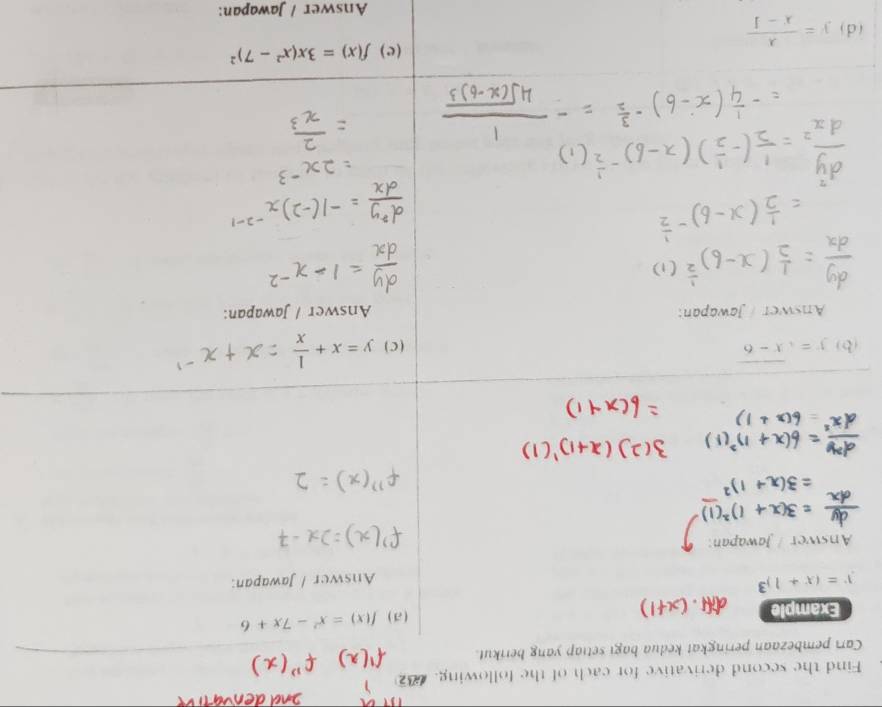 1st 2nd derivative
f'(x) f''(x)
Find the second derivative for each of the following.
Cari pembezaan peringkat kedua bagi setiap yang berikut.
Example diff. (x+1)
y = (x + 1)³
Answer / Jawapan:
dy/dx = 3(x + 1)²(1)
= 3(x + 1)²
d²y/dx² = 6(x + 1)¹(1) 3(2)(x+1)¹(1)
= 6(x + 1) = 6(x+1)
(a) f(x) = x² − 7x + 6
Answer / Jawapan:
f'(x) = 2x - 7
f''(x) = 2
(b) y = √x − 6
Answer / Jawapan:
dy/dx = 1/2 (x-6)^-1/2 (1)
= 1/2 (x-6)^-1/2
d²y/dx² = 1/2 (-1/2)(x-6)^-3/2 (1)
= -1/4 (x-6)^-3/2 = - 1/4√(x-6)³
(c) y = x + 1/x = x + x⁻¹
Answer / Jawapan:
dy/dx = 1 - x⁻²
d²y/dx = -1(-2)x⁻²⁻¹
= 2x⁻³
= 2/x³
(d) y = x/x − 1
(e) f(x) = 3x(x² − 7)²
Answer / Jawapan: